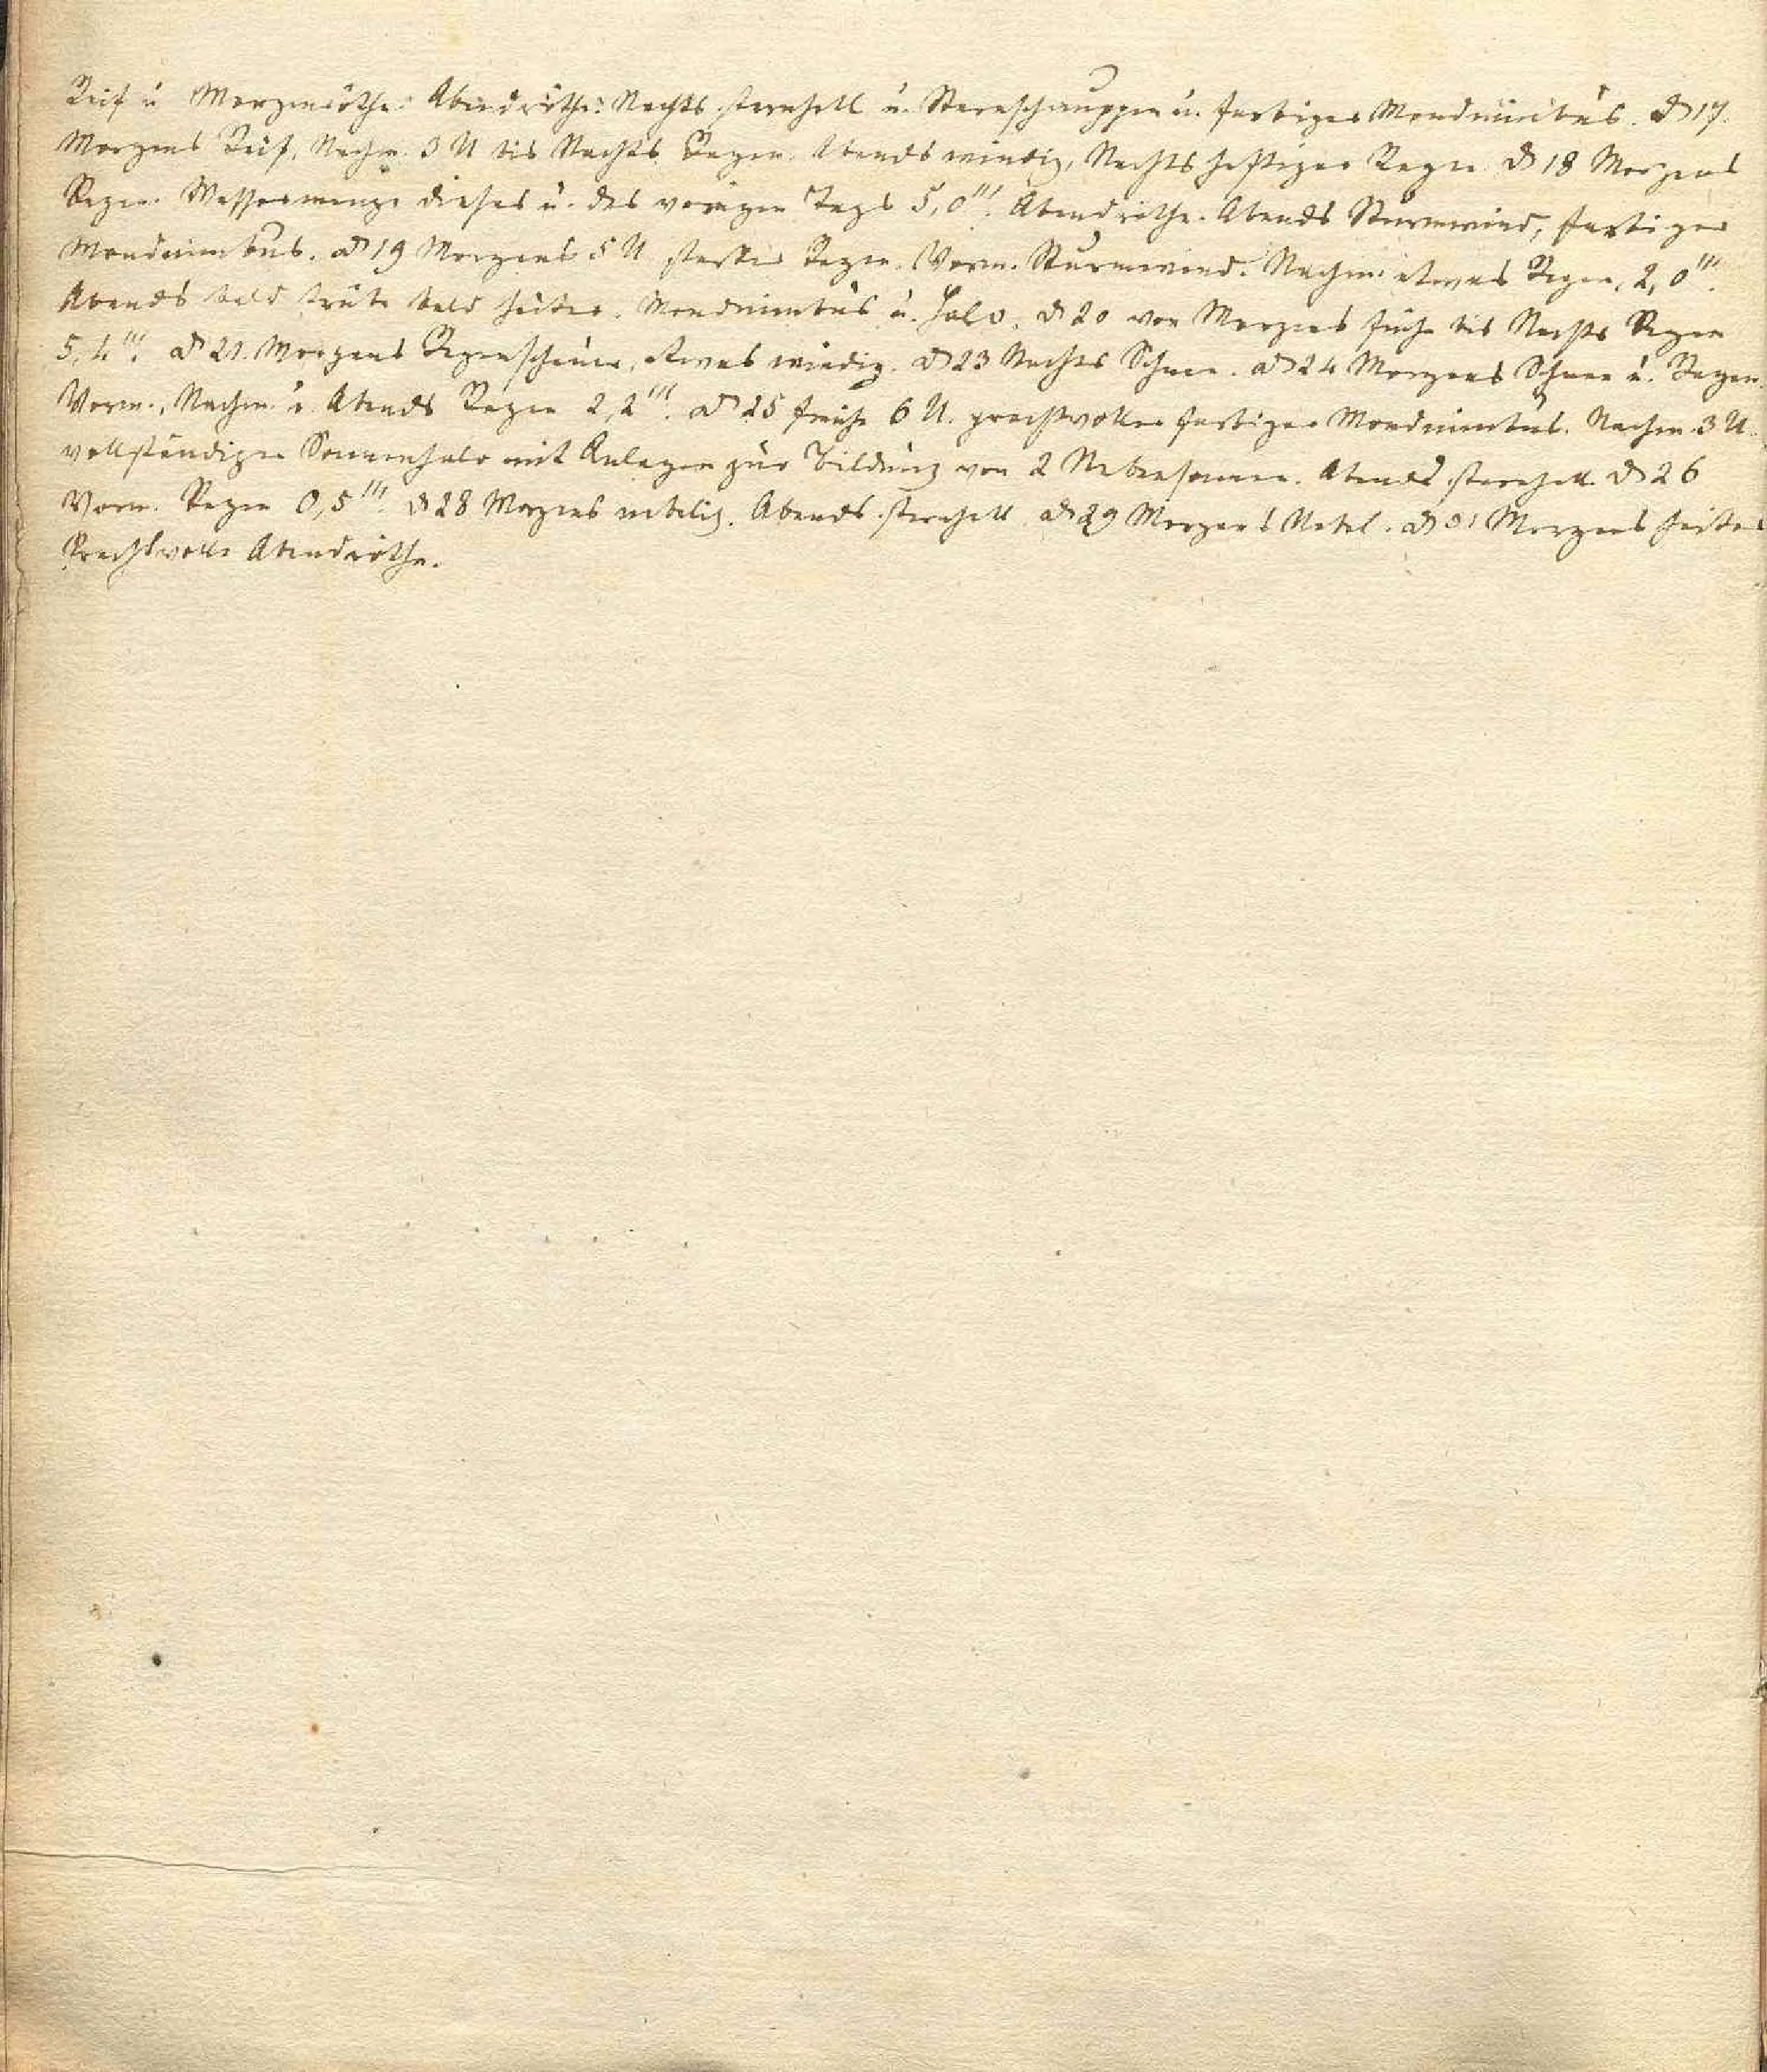 Reif u Morgenröthe. Abendröthe. Nachts sternhell u. Sternschnuppen u. farbiger Mondnimbus. D 17.
Morgens Reif, Nachm. 3 U bis Nachts Regen. Abends windig, Nachts heftiger Regen. D 18 Morgens
Regen. Wassermenge dieses u. des vorigen Tags 5,0‴. Abendröthe. Abends Sturmwind, farbiger
Mondnimbus. D 19 Morgens 5 U starker Regen. Vorm. Sturmwind. Nachm. etwas Regen, 2,0‴.
Abends bald trübe bald heiter. Mondnimbus u. Halo. D 20 von Morgens frühe bis Nachts Regen
5,4‴. D 21. Morgens Regenschauer, etwas windig. D 23 Nachts Schnee. D 24 Morgens Schnee u. Regen.
Vorm., Nachm. u. Abends Regen 2,2‴. D 25 frühe 6 U. prachtvoller farbiger Mondnimbus. Nachm. 3 U.
vollständiger Sonnenhalo mit Anlagen zur Bildung von 2 Nebensonnen. Abends sternhell. D 26
Vorm. Regen 0,5‴. D 28 Morgens neblig. Abends sternhell. D 29 Morgens Nebel. D 31 Morgens heiter
Prachtvolle Abendröthe.